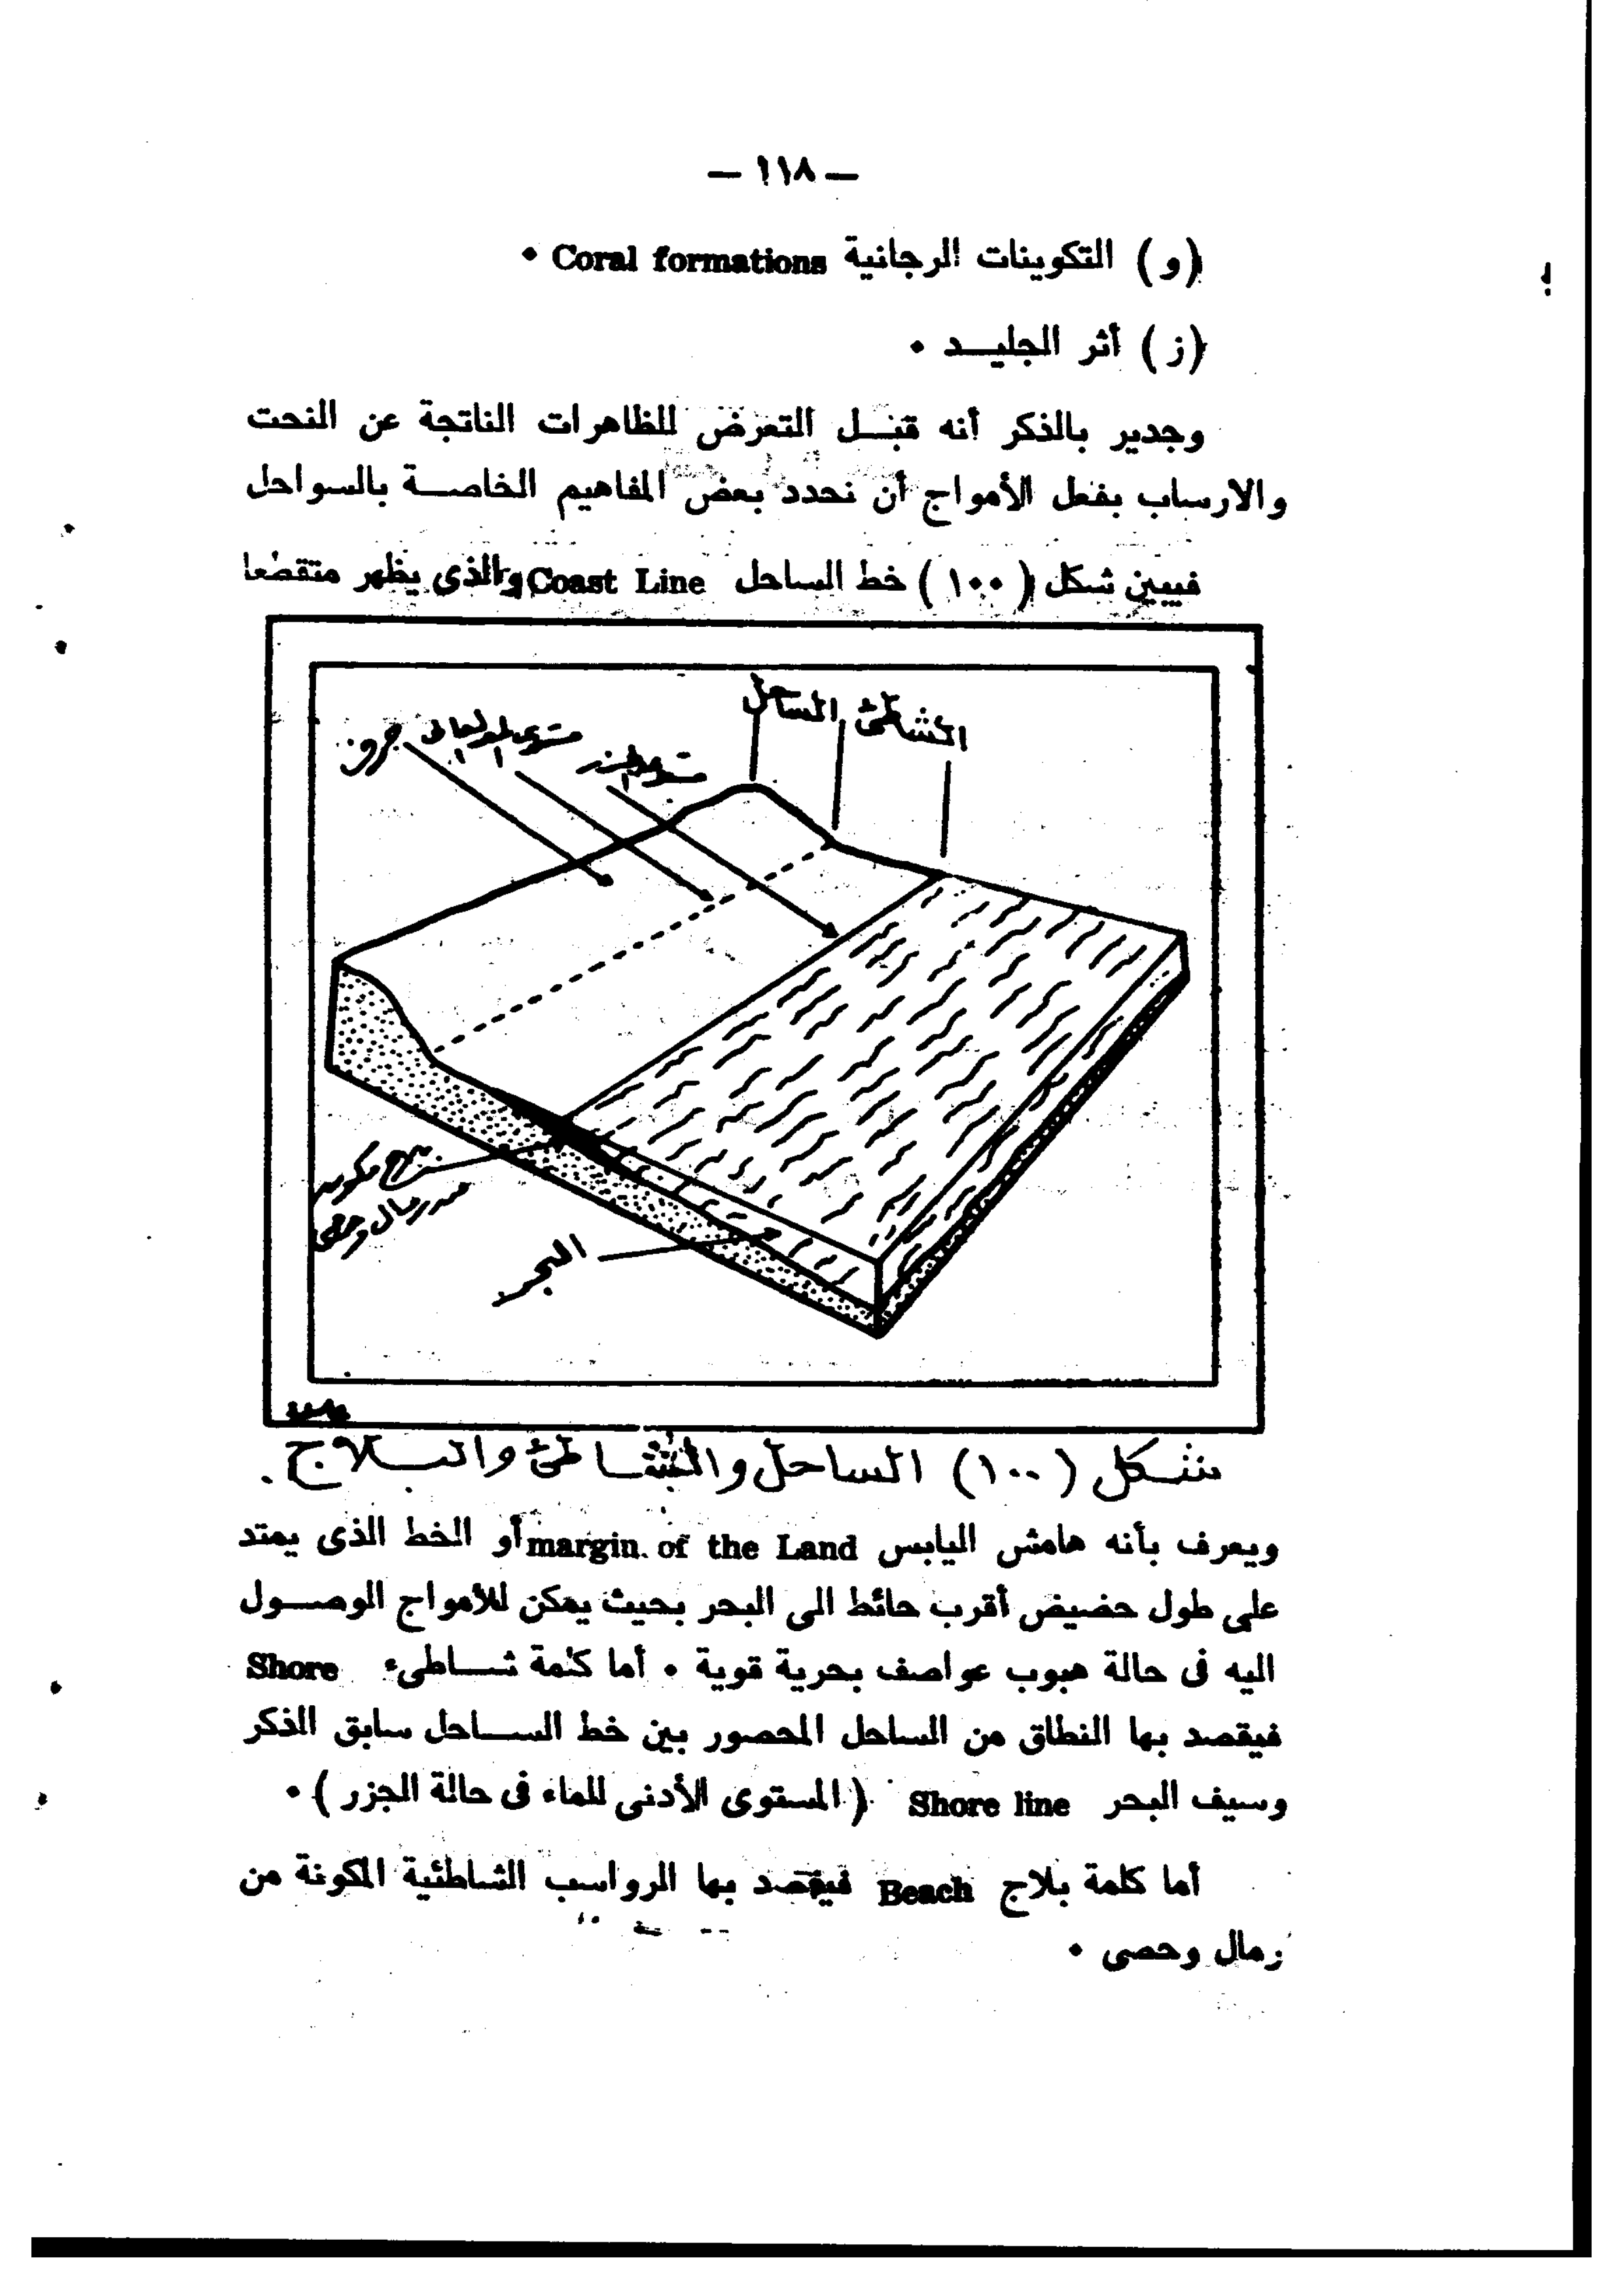 — ١١٨ —
(و) التكوينات الرجانية Coral formations •
(ز) أثر الجليــد •
وجدير بالذكر أنه قبــل التعرض للظاهرات الناتجة عن النحت
والارساب بفعل الأمواج أن نحدد بعض المفاهيم الخاصــة بالسواحل
فيبين شكل (١٠٠) خط الساحل Coast Line والذى يظهر متقطعا
الشاطئ الساحل
مستوى الجزر
مستوى المد العالى
جرف
بلاج مكون
من رمال وحصى
البحر
شكل (١٠٠) الساحل والشاطئ والبلاج .
ويعرف بأنه هامش اليابس margin of the Land أو الخط الذى يمتد
على طول حضيض أقرب حائط الى البحر بحيث يمكن للأمواج الوصــول
اليه فى حالة هبوب عواصف بحرية قوية • أما كلمة شــاطىء Shore
فيقصد بها النطاق من الساحل المحصور بين خط الســاحل سابق الذكر
وسيف البحر Shore line (المستوى الأدنى للماء فى حالة الجزر) •
أما كلمة بلاج Beach فيقصد بها الرواسب الشاطئية المكونة من
رمال وحصى •